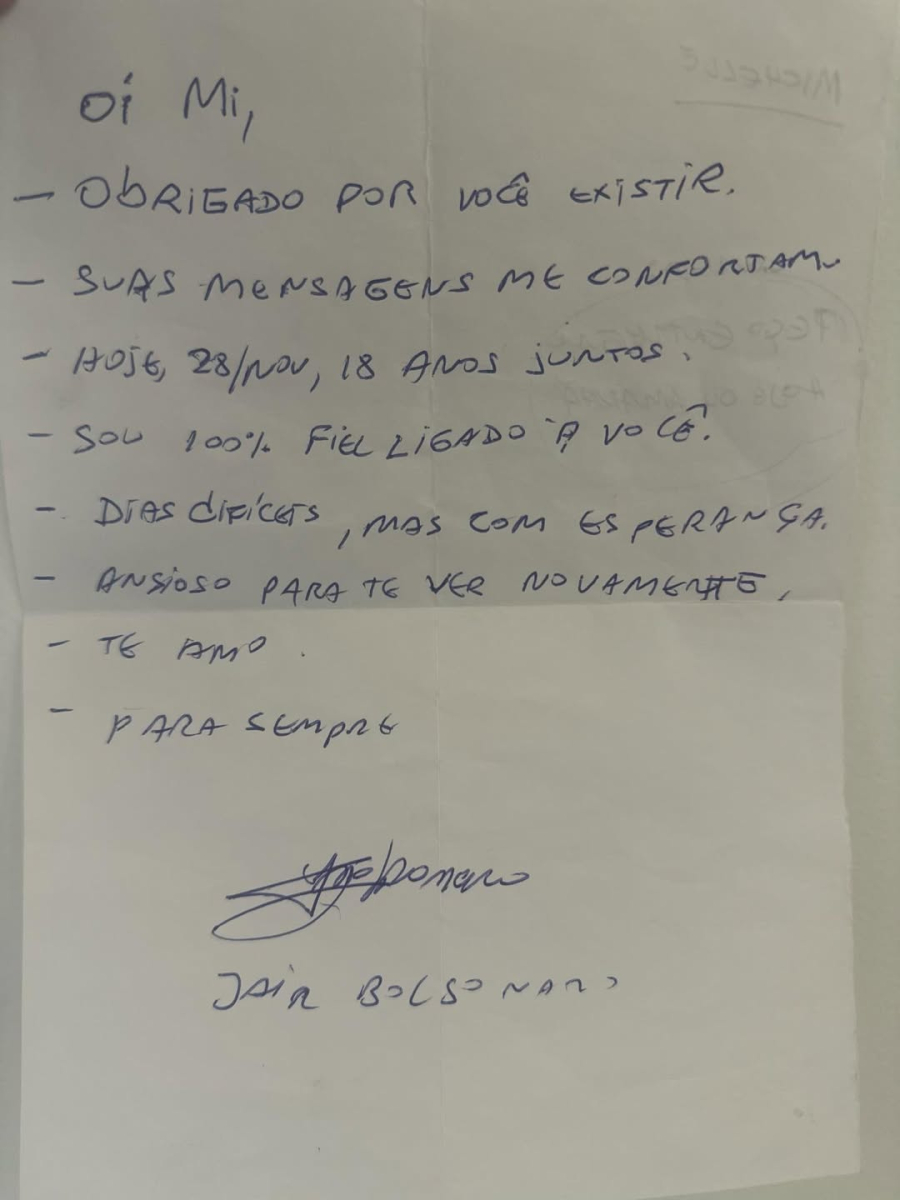 Oi Mi,
- OBRIGADO POR VOCÊ EXISTIR.
- SUAS MENSAGENS ME CONFORTAM.
- HOJE, 28/NOV, 18 ANOS JUNTOS.
- SOU 100% FIEL LIGADO À VOCÊ.
- DIAS DIFÍCEIS, MAS COM ESPERANÇA.
- ANSIOSO PARA TE VER NOVAMENTE,
- TE AMO.
- PARA SEMPRE
JAIR BOLSONARO
MICHELLE